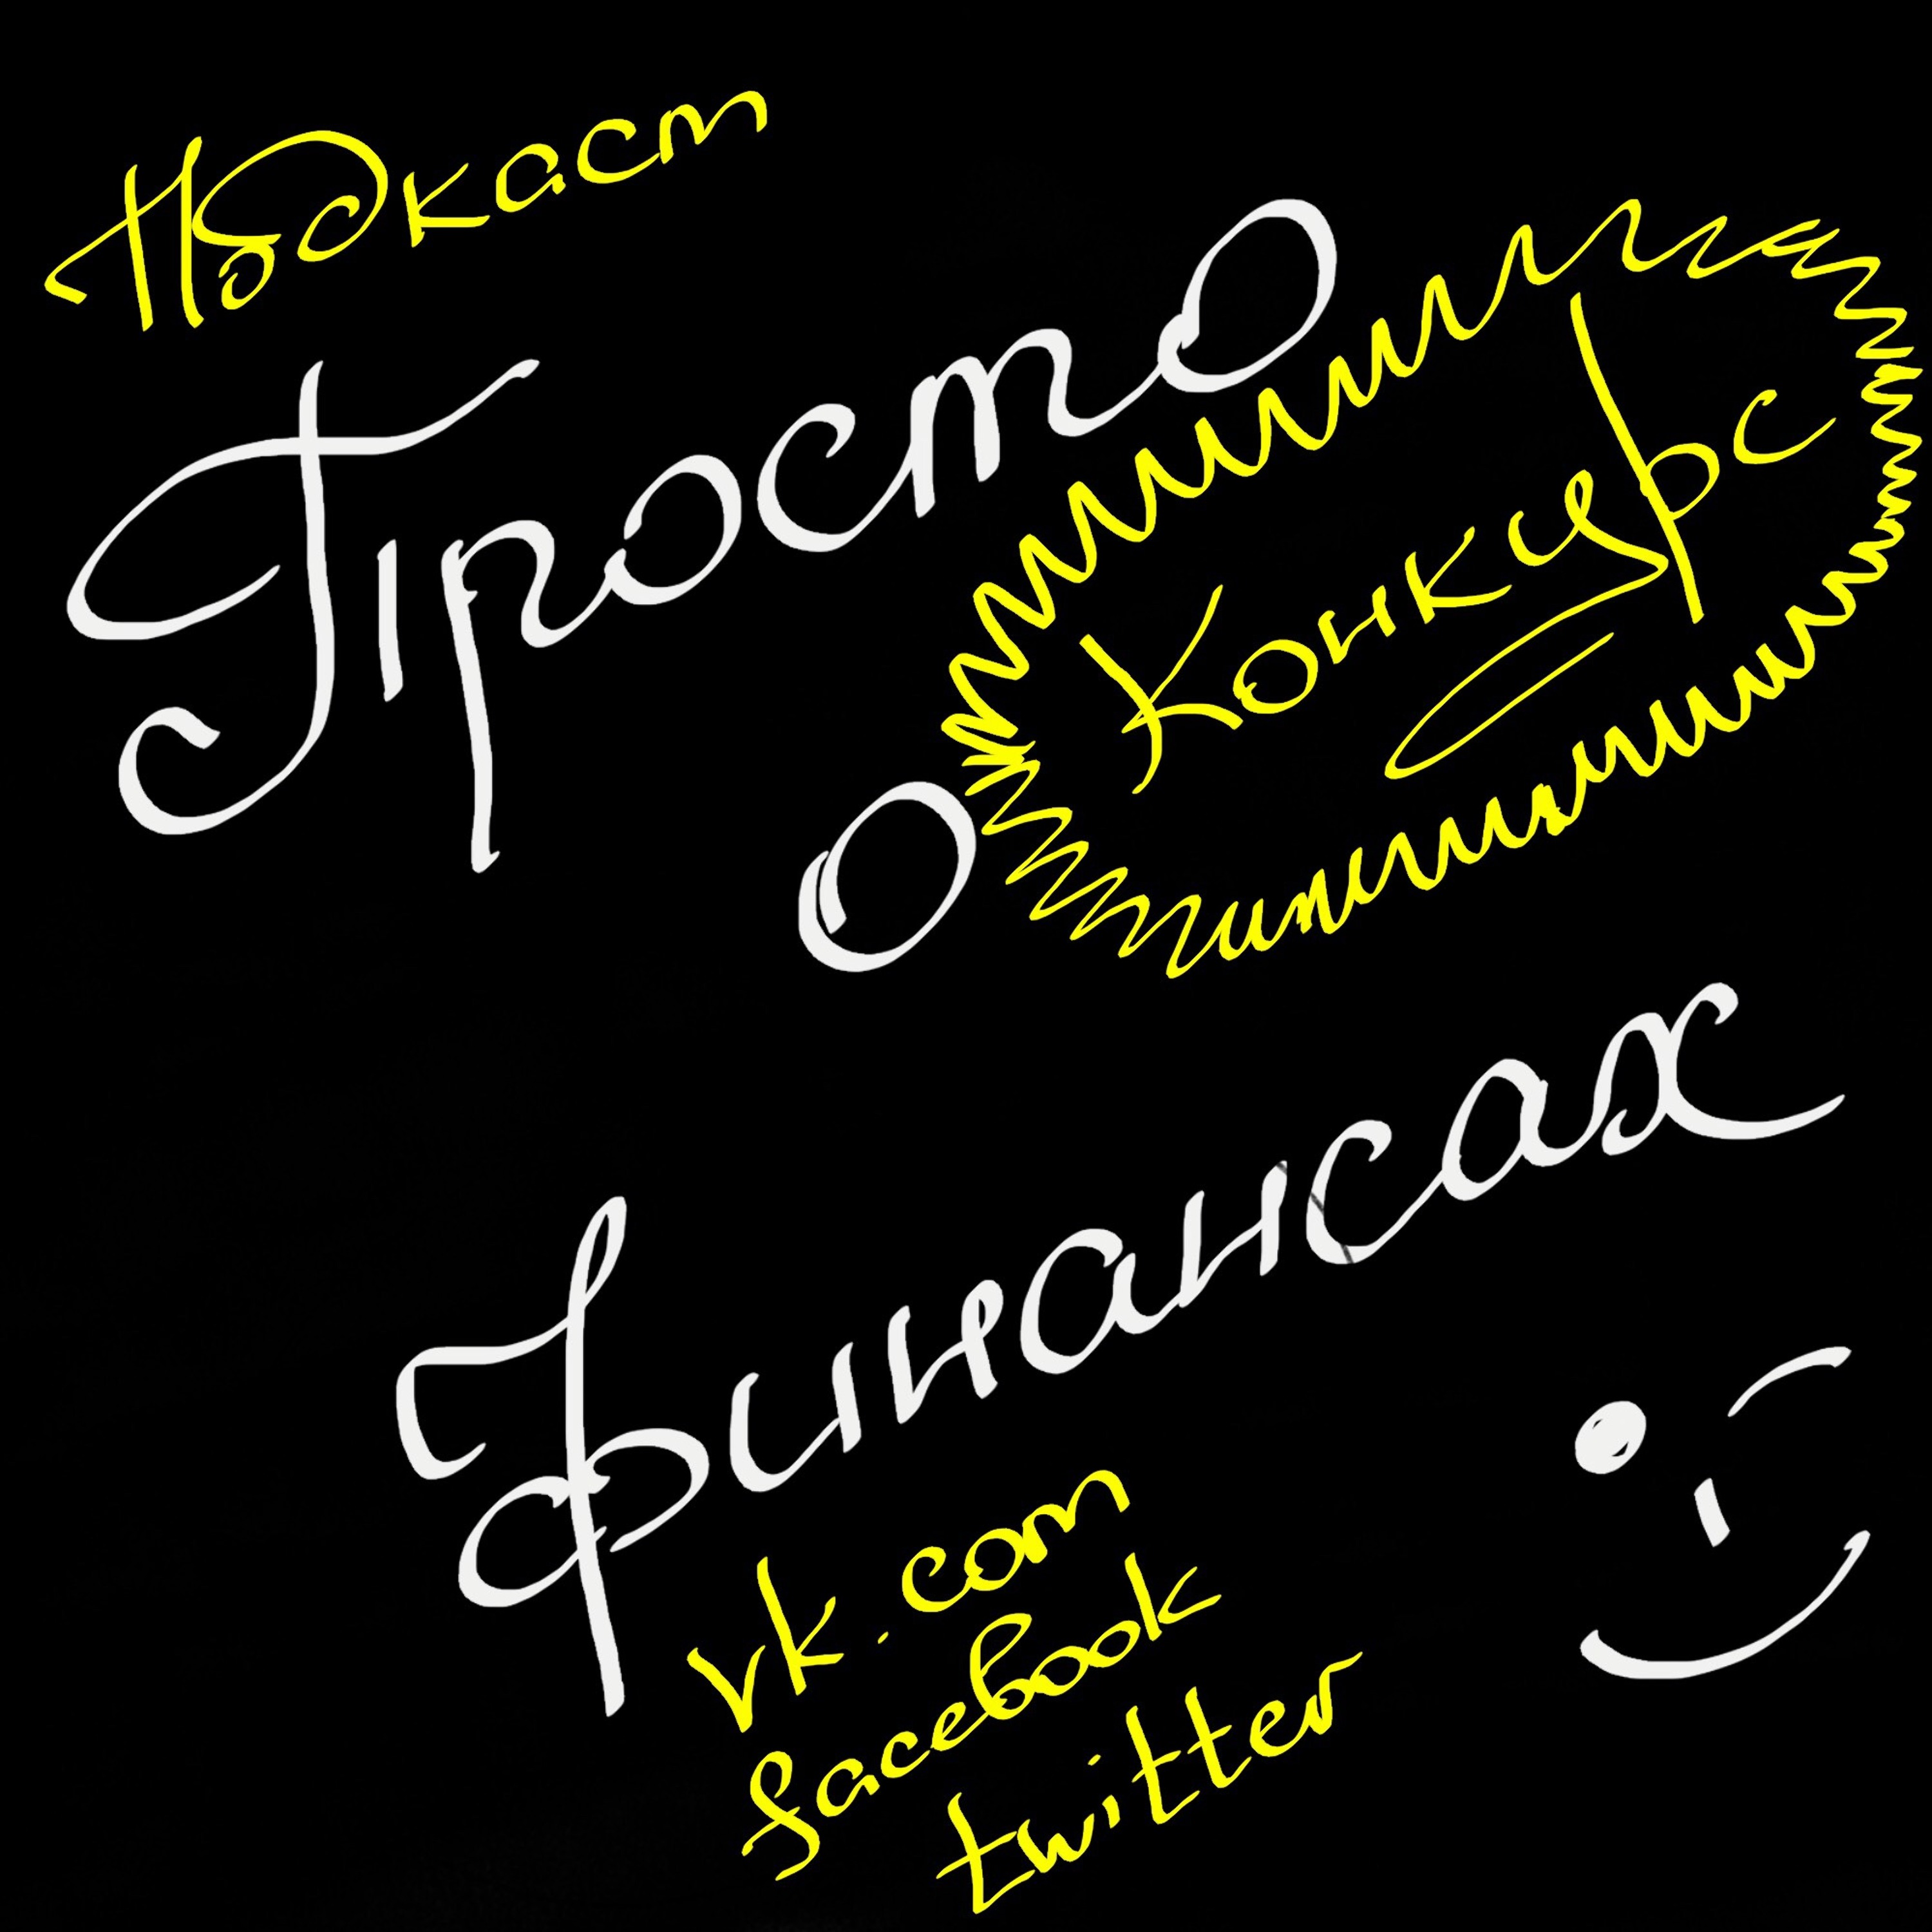 Подкаст
Просто
Конкурс
о
финансах
vk.com
facebook
twitter